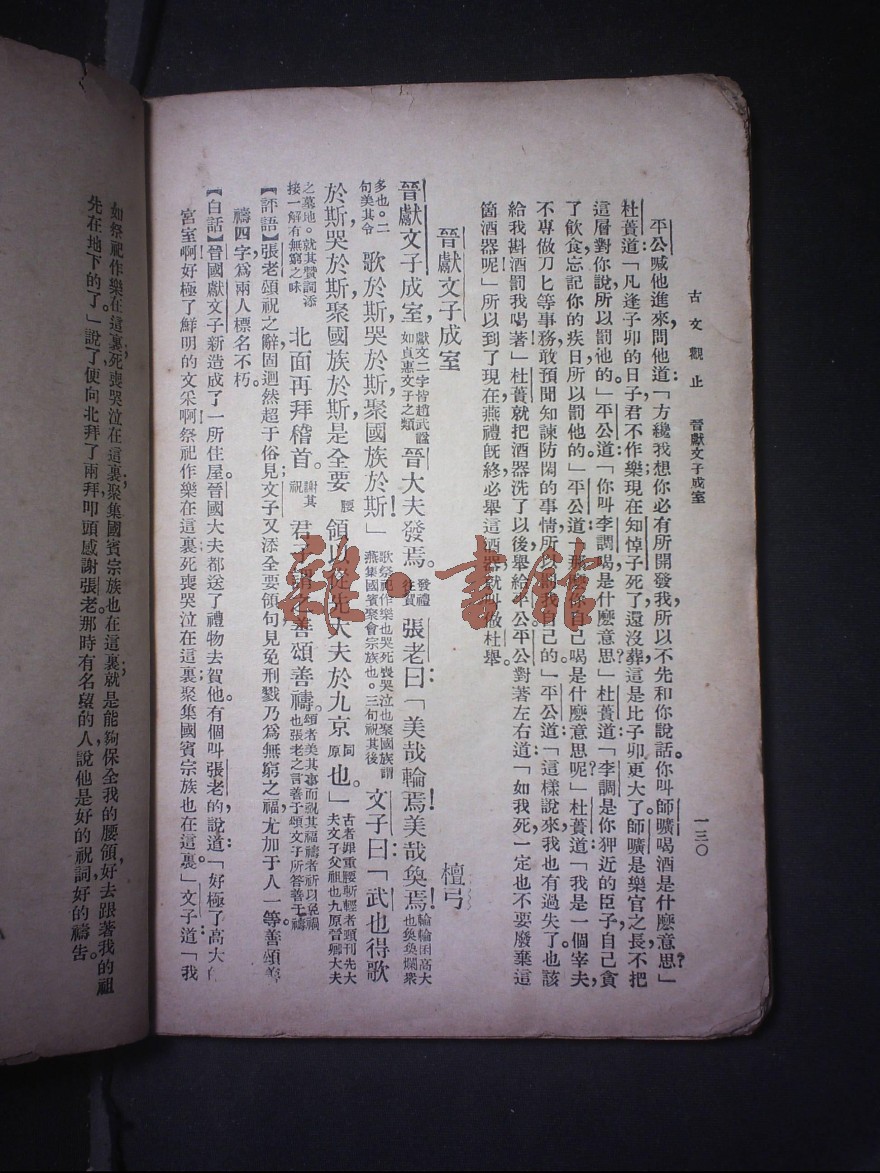 古文觀止　晉獻文子成室
一三〇
平公喊他進來，問他道：「方纔我想你必有所開發我，所以不先和你說話。你叫師曠喝酒，是什麽意思？」
杜蕢道：「凡逢子卯的日子，君不作樂，現在知悼子死了，還沒葬，這是比子卯更大了，師曠是樂官之長，不把
這層對你說，所以罰他的。」平公道：「你叫李調喝是什麽意思」杜蕢道：「李調是你狎近的臣子，自己貪
了飲食，忘記你的疾日，所以罰他的」平公道：「你自己喝是什麽意思呢？」杜蕢道：「我是一個宰夫，
不專做刀匕等事務，敢預聞知諫防閑的事情，所以罰我自己的」平公道：「這樣說來，我也有過失了，也該
給我斟酒，罰我喝著」杜蕢就把酒器洗了以後，舉給平公，平公對著左右道：「如我死，一定也不要廢棄這
箇酒器呢」所以到了現在，燕禮旣終，必舉這酒器，就叫做杜舉。
晉獻文子成室
檀弓
晉獻文子成室，獻文二字皆趙武諡如貞惠文子之類晉大夫發焉。發禮往賀張老曰：「美哉輪焉！美哉奐焉！輪輪囷高大也奐奐爛衆
多也。二句美其令歌於斯，哭於斯，聚國族於斯！」歌祭祀作樂也哭死喪哭泣也聚國族謂燕集國賓聚會宗族也。三句祝其後文子曰：「武也得歌
於斯，哭於斯，聚國族於斯，是全要腰領以從先大夫於九京同原也。」古者罪重腰斬輕者頸刑先大夫文子父祖也九原晉卿大夫
之墓地。就其贊詞添接一解有無窮之味北面再拜稽首。謝其祝君子謂之善頌善禱。頌者美其事而祝其福禱者祈以免禍也張老之言善于頌文子所答善于禱
【評語】張老頌祝之辭，固迥然超于俗見；文子又添全要領句，見免刑戮乃爲無窮之福，尤加于人一等，善頌善
禱四字，爲兩人標名不朽。
【白話】晉國獻文子新造成了一所住屋，晉國大夫都送了禮物去賀他。有個叫張老的說道：「好極了高大的
宮室啊！好極了鮮明的文采啊！祭祀作樂在這裏，死喪哭泣在這裏，聚集國賓宗族也在這裏。」文子道：「我
如祭祀作樂在這裏，死喪哭泣在這裏，聚集國賓宗族也在這裏，就是能夠保全我的腰領，好去跟著我的祖
先在地下的了。」說了便向北拜了兩拜，叩頭感謝張老，那時有名望的人，說他是好的祝詞，好的禱告。
雜·書館